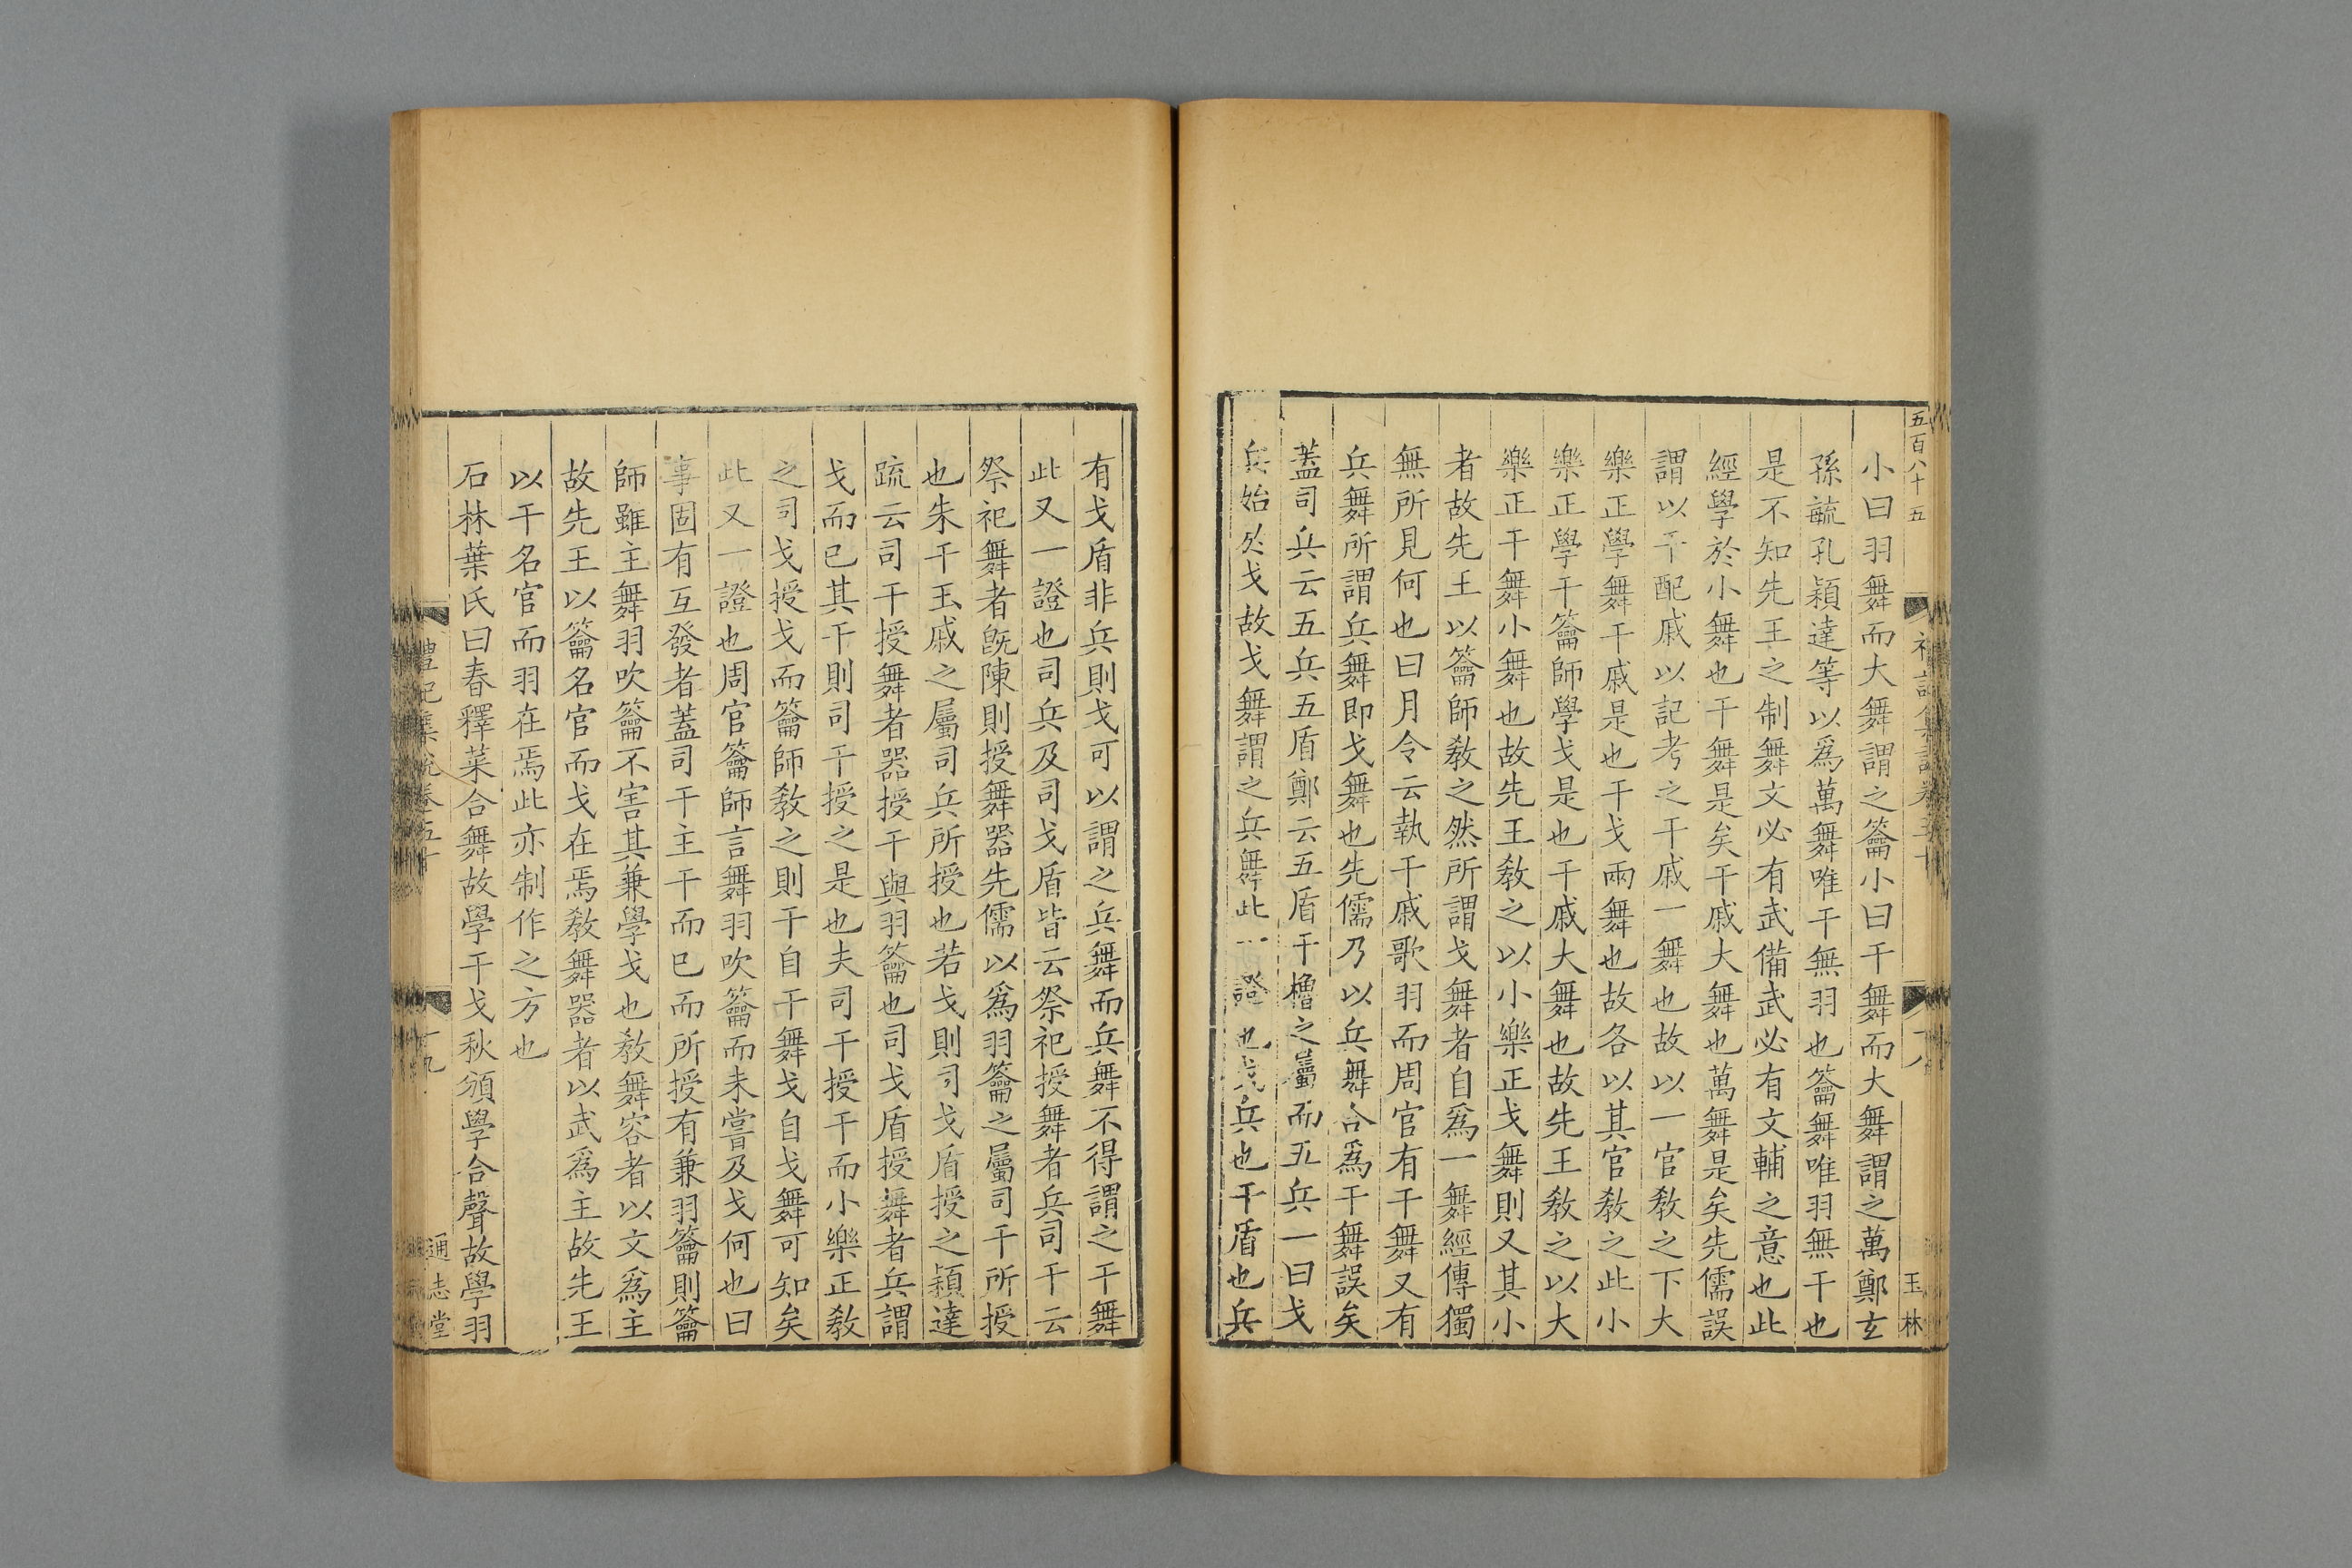 五百八十五
玉林
小曰羽舞而大舞謂之籥小曰干舞而大舞謂之萬鄭玄
孫毓孔穎達等以爲萬舞唯干無羽也籥舞唯羽無干也
是不知先王之制舞文必有武備武必有文輔之意也此
經學於小舞也干舞是矣干戚大舞也萬舞是矣先儒誤
謂以干配戚以記考之干戚一舞也故以一官敎之下大
樂正學舞干戚是也干戈兩舞也故各以其官敎之此小
樂正學干籥師學戈是也干戚大舞也故先王敎之以大
樂正干舞小舞也故先王敎之以小樂正戈舞則又其小
者故先王以籥師敎之然所謂戈舞者自爲一舞經傳獨
無所見何也曰月令云執干戚歌羽而周官有干舞又有
兵舞所謂兵舞即戈舞也先儒乃以兵舞合爲干舞誤矣
蓋司兵云五兵五盾鄭云五盾干櫓之屬而五兵一曰戈
兵始於戈故戈舞謂之兵舞此一證也戈兵也干盾也兵
有戈盾非兵則戈可以謂之兵舞而兵舞不得謂之干舞
此又一證也司兵及司戈盾皆云祭祀授舞者兵司干云
祭祀舞者旣陳則授舞器先儒以爲羽籥之屬司干所授
也朱干玉戚之屬司兵所授也若戈則司戈盾授之穎達
疏云司干授舞者器授干與羽籥也司戈盾授舞者兵謂
戈而已其干則司干授之是也夫司干授干而小樂正敎
之司戈授戈而籥師敎之則干自干舞戈自戈舞可知矣
此又一證也周官籥師言舞羽吹籥而未嘗及戈何也曰
事固有互發者蓋司干主干而已而所授有兼羽籥則籥
師雖主舞羽吹籥不害其兼學戈也敎舞容者以文爲主
故先王以籥名官而戈在焉敎舞器者以武爲主故先王
以干名官而羽在焉此亦制作之方也
石林葉氏曰春釋菜合舞故學干戈秋頒學合聲故學羽
禮記集說卷五十
十九
通志堂